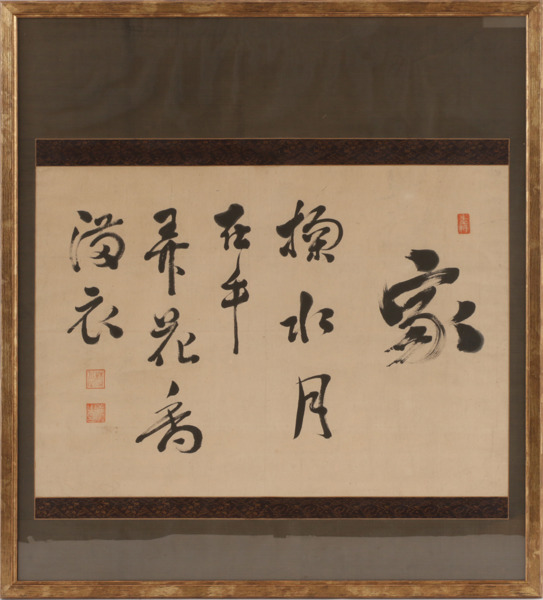 家
掬水月
在手
弄花香
滿衣